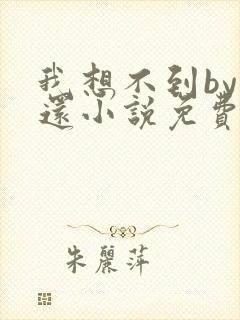 我想不到by
還小說免費
朱麗萍